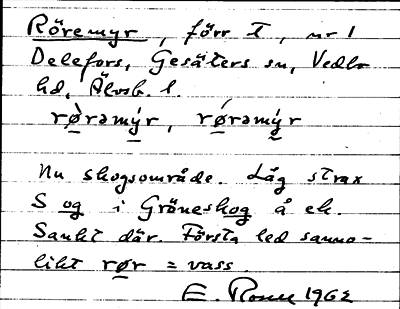 Röremyr, förr T, nr 1
Delefors, Gesäters sn, Vedbo
hd, Älvsb. l.
rø̀rəmýr, rǿrəmy̆r
Nu skogsområde. Låg strax
S og i Gröneskog å ek.
Sankt där. Första led sanno-
likt rør = vass.
E. Rosell 1962